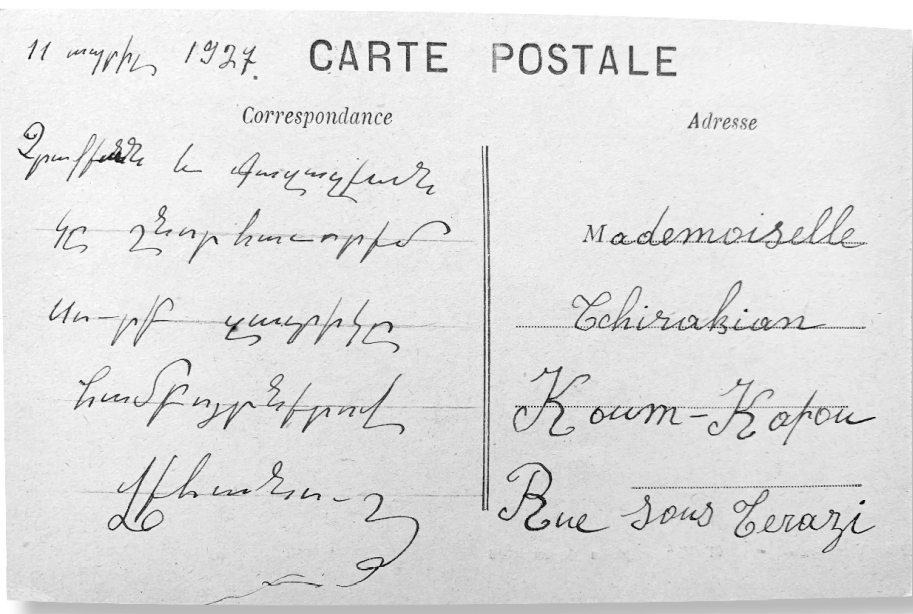 11 ապրիլ 1927.
CARTE POSTALE
Correspondance
կը շնորհաւորիմ
Սուրբ զատիկը
համբոյրներով
Adresse
Mademoiselle
Tchirakian
Koum-Kapou
Rue sous Terazi